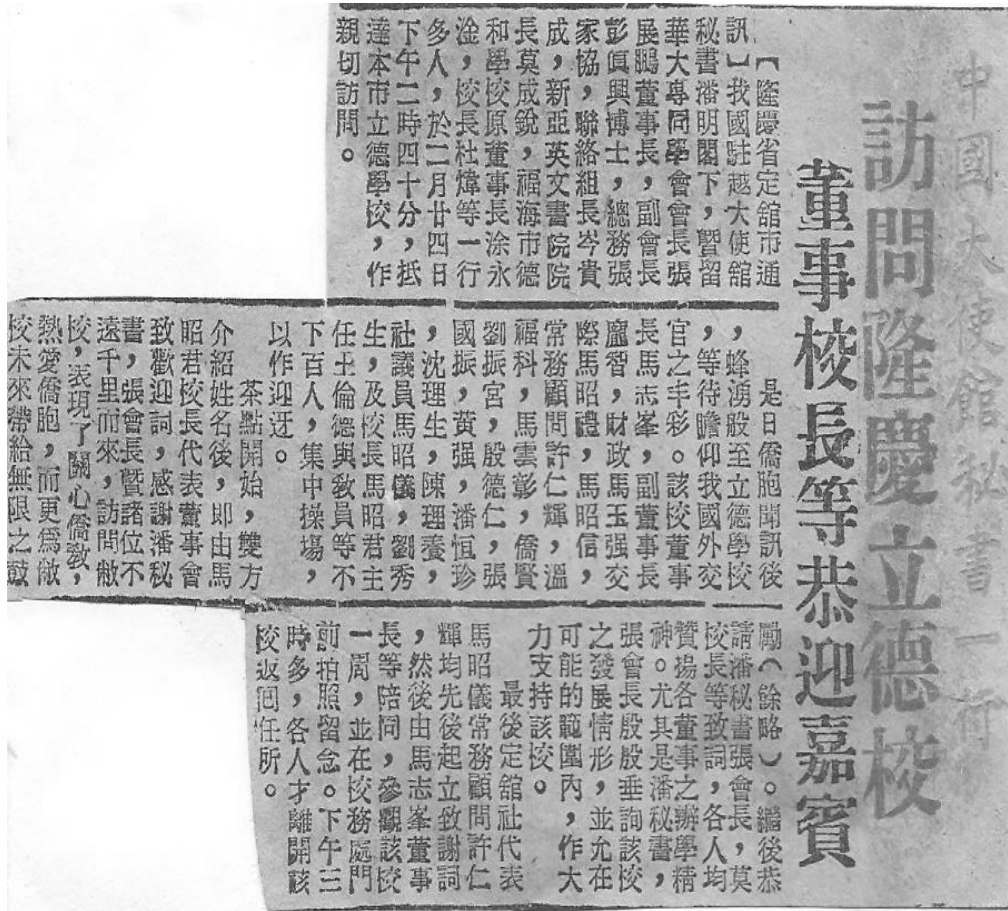 中國大使館秘書一行
訪問隆慶立德校
董事校長等恭迎嘉賓
【隆慶省定舘市通
訊】我國駐越大使舘
秘書潘明閣下,暨留
華大專同學會會長張
展鵬董事長,副會長
彭偵興博士,總務張
家協,聯絡組長岑貴
成,新亞英文書院院
長莫成銳,福海市德
和學校原董事長涂永
淦,校長杜煒等一行
多人,於二月廿四日
下午二時四十分,抵
達本市立德學校,作
親切訪問。
是日僑胞聞訊後
,蜂湧般至立德學校
,等待瞻仰我國外交
官之丰彩。該校董事
長馬志峯,副董事長
龐智,財政馬玉强交
際馬昭禮,馬昭信,
常務顧問許仁輝,溫
福科,馬雲彰,僑賢
劉振宮,殷德仁,張
國振,黃强,潘恒珍
,沈理生,陳理養,
社議員馬昭儀,劉秀
生,及校長馬昭君主
任王倫德與敎員等不
下百人,集中操場,
以作迎迓。
茶點開始,雙方
介紹姓名後,即由馬
昭君校長代表董事會
致歡迎詞,感謝潘秘
書,張會長暨諸位不
遠千里而來,訪問敝
校,表現了關心僑敎,
熱愛僑胞,而更爲敝
校未來帶給無限之鼓
勵(餘略)。繼後恭
請潘秘書張會長,莫
校長等致詞,各人均
贊揚各董事之辦學精
神。尤其是潘秘書,
張會長殷殷垂詢該校
之發展情形,並允在
可能的範圍內,作大
力支持該校。
最後定舘社代表
馬昭儀常務顧問許仁
輝均先後起立致謝詞
,然後由馬志峯董事
長等陪同,參觀該校
一周,並在校務處門
前拍照留念。下午三
時多,各人才離開該
校返囘任所。